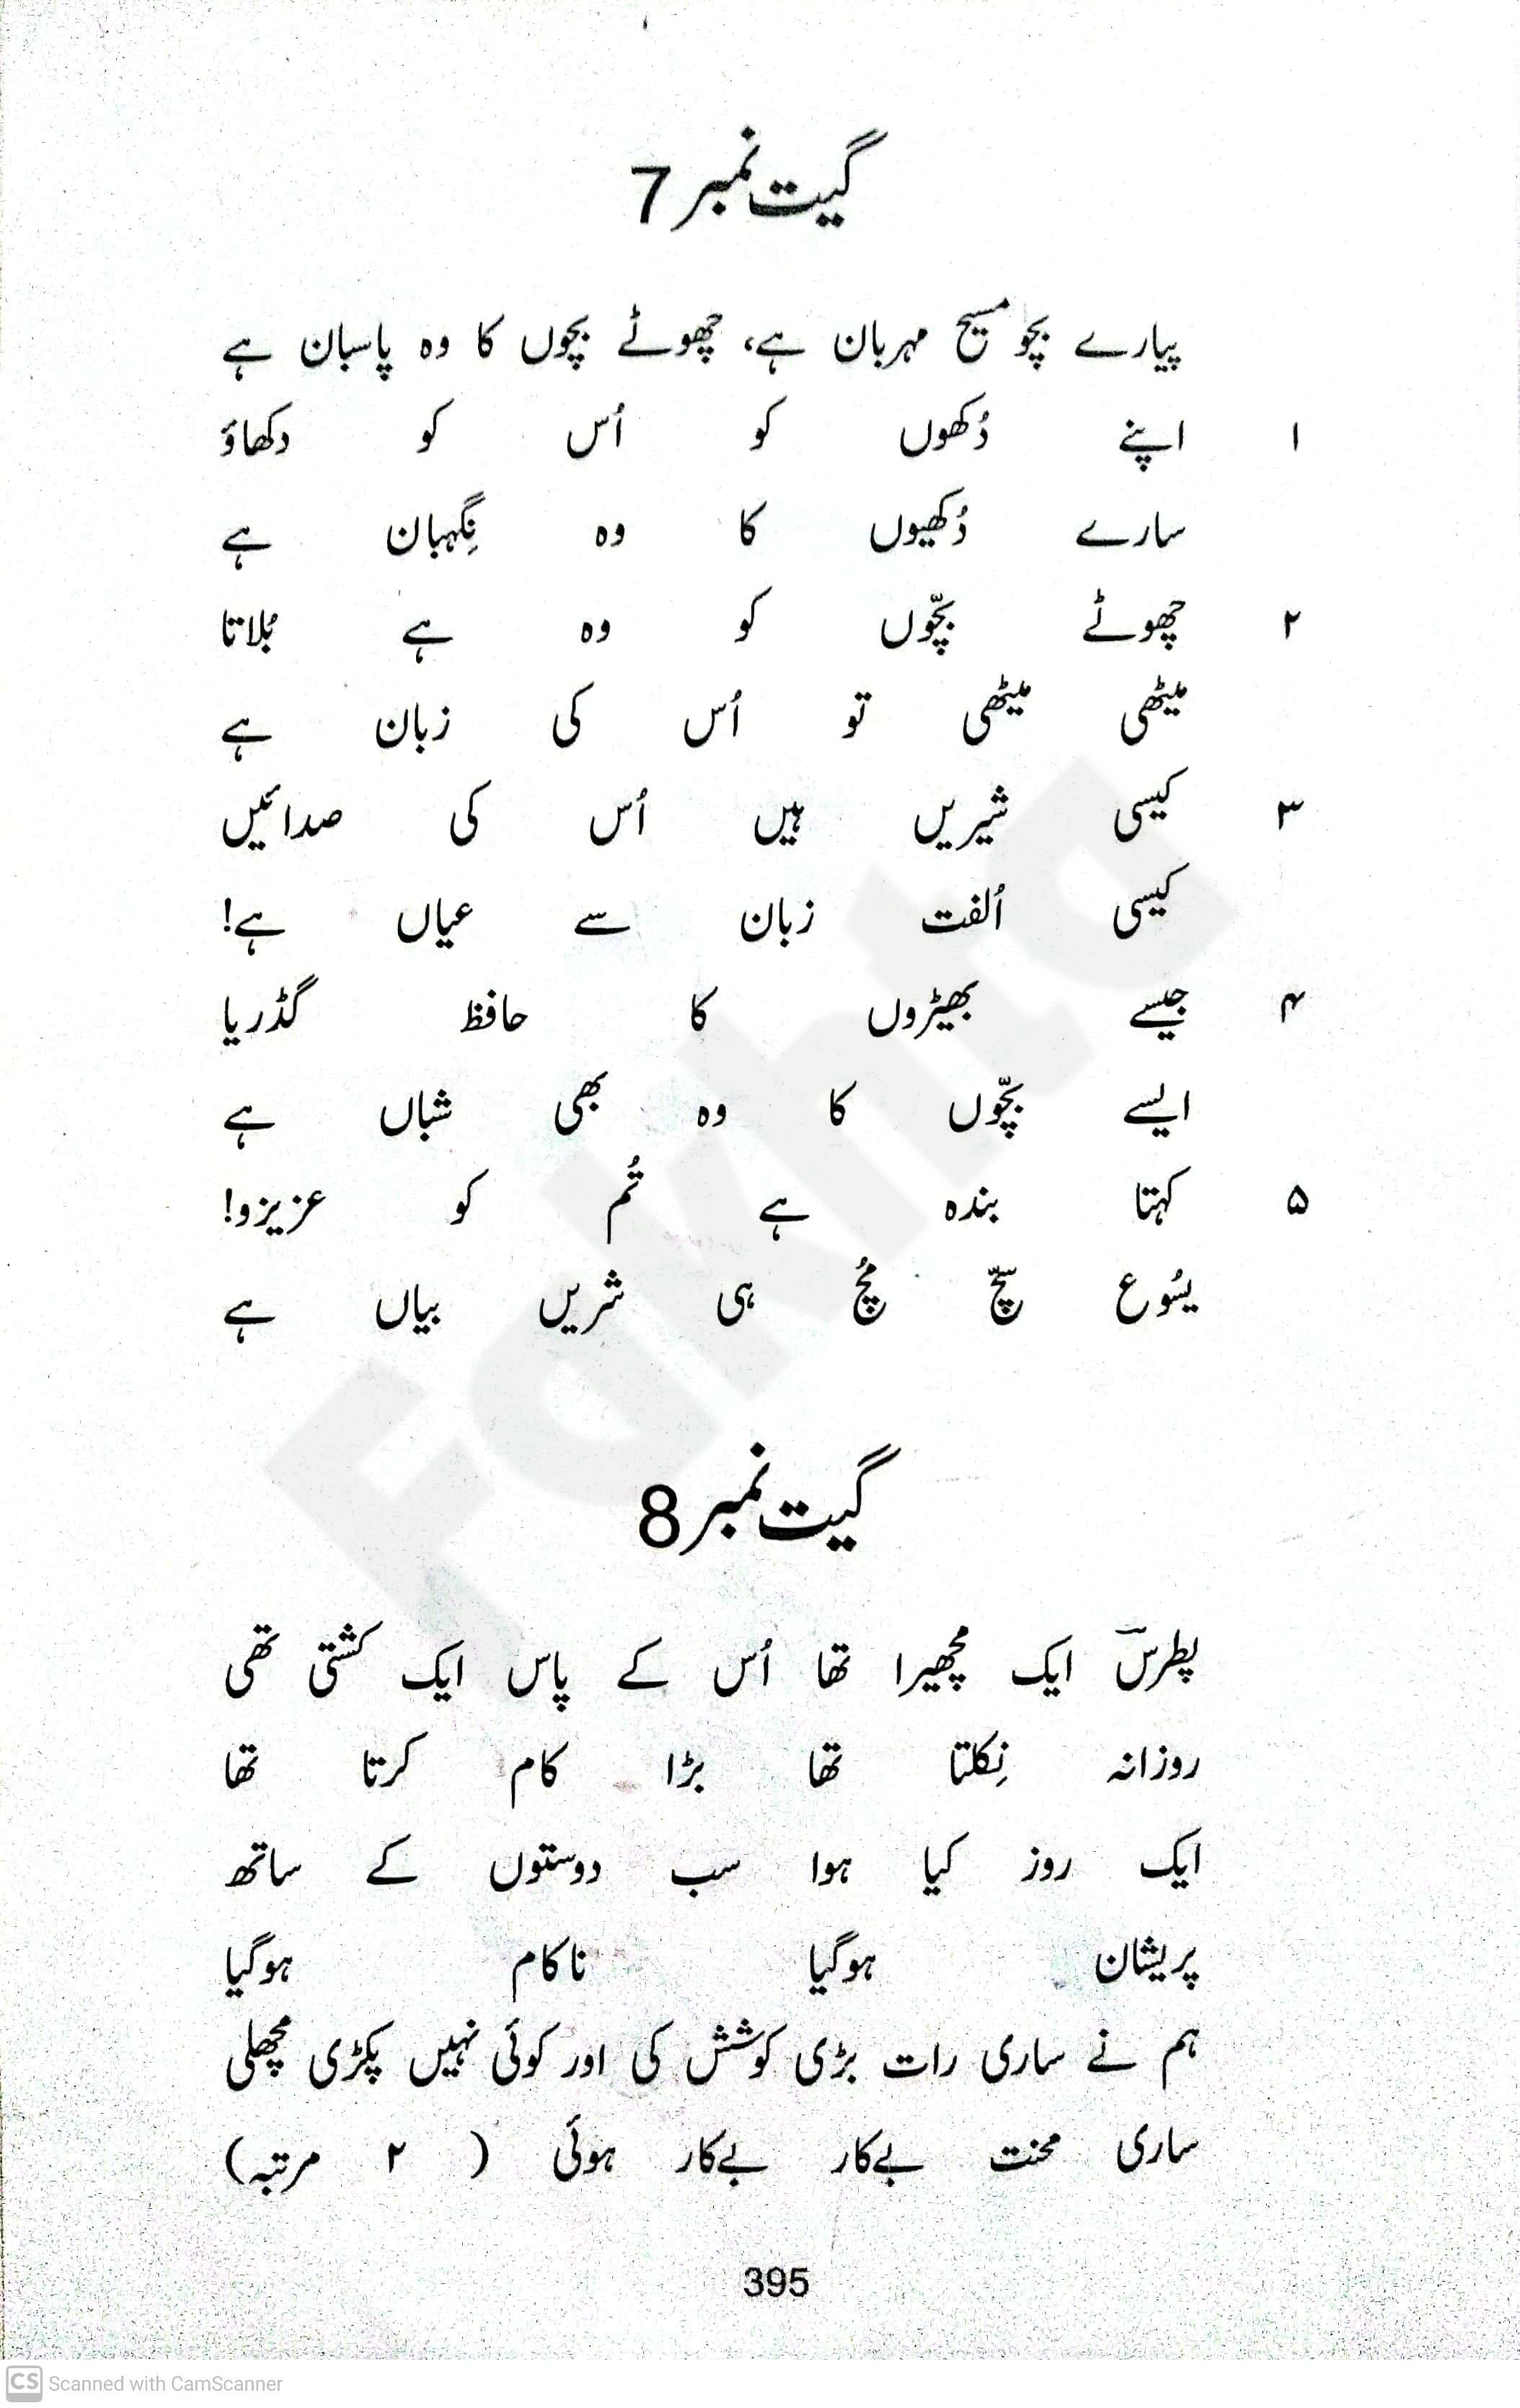 گیت نمبر 7
پیارے بچو مسیح مہربان ہے، چھوٹے بچوں کا وہ پاسبان ہے
۱ اپنے دُکھوں کو اُس کو دکھاؤ
سارے دُکھیوں کا وہ نِگہبان ہے
۲ چھوٹے بچّوں کو وہ ہے بُلاتا
میٹھی میٹھی تو اُس کی زبان ہے
۳ کیسی شیریں ہیں اُس کی صدائیں
کیسی اُلفت زبان سے عیاں ہے!
۴ جیسے بھیڑوں کا حافظ گڈریا
ایسے بچّوں کا وہ بھی شباں ہے
۵ کہتا بندہ ہے تُم کو عزیزو!
یسُوع سچّ مُچ ہی شریں بیاں ہے
گیت نمبر 8
پطرسؔ ایک مچھیرا تھا اُس کے پاس ایک کشتی تھی
روزانہ نِکلتا تھا بڑا کام کرتا تھا
ایک روز کیا ہوا سب دوستوں کے ساتھ
پریشان ہوگیا ناکام ہوگیا
ہم نے ساری رات بڑی کوشش کی اور کوئی نہیں پکڑی مچھلی
ساری محنت بےکار بےکار ہوئی ( ۲ مرتبہ)
395
Fakhta
CS Scanned with CamScanner